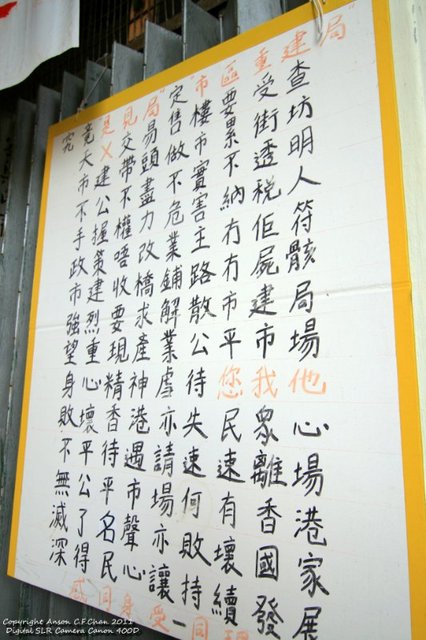 建查坊明人符骸局場他心場港家展
重受街透稅佢屍建市我眾離香國發
區要累不納冇冇市平您民速有壞續理
市樓市實害主路散公待失速何敗持一同
定售做不危業鋪解業虐亦請場亦讓受
局易頭盡力改橋求產神港遇市聲心身
見交帶不權唔收要現精香待平名民同
是X建公握策建烈重心壞平公了得感
竟大市不手政市強望身敗不無滅深
究
局
Copyright Anson C.F.Chan 2011
Digital SLR Camera Canon 400D